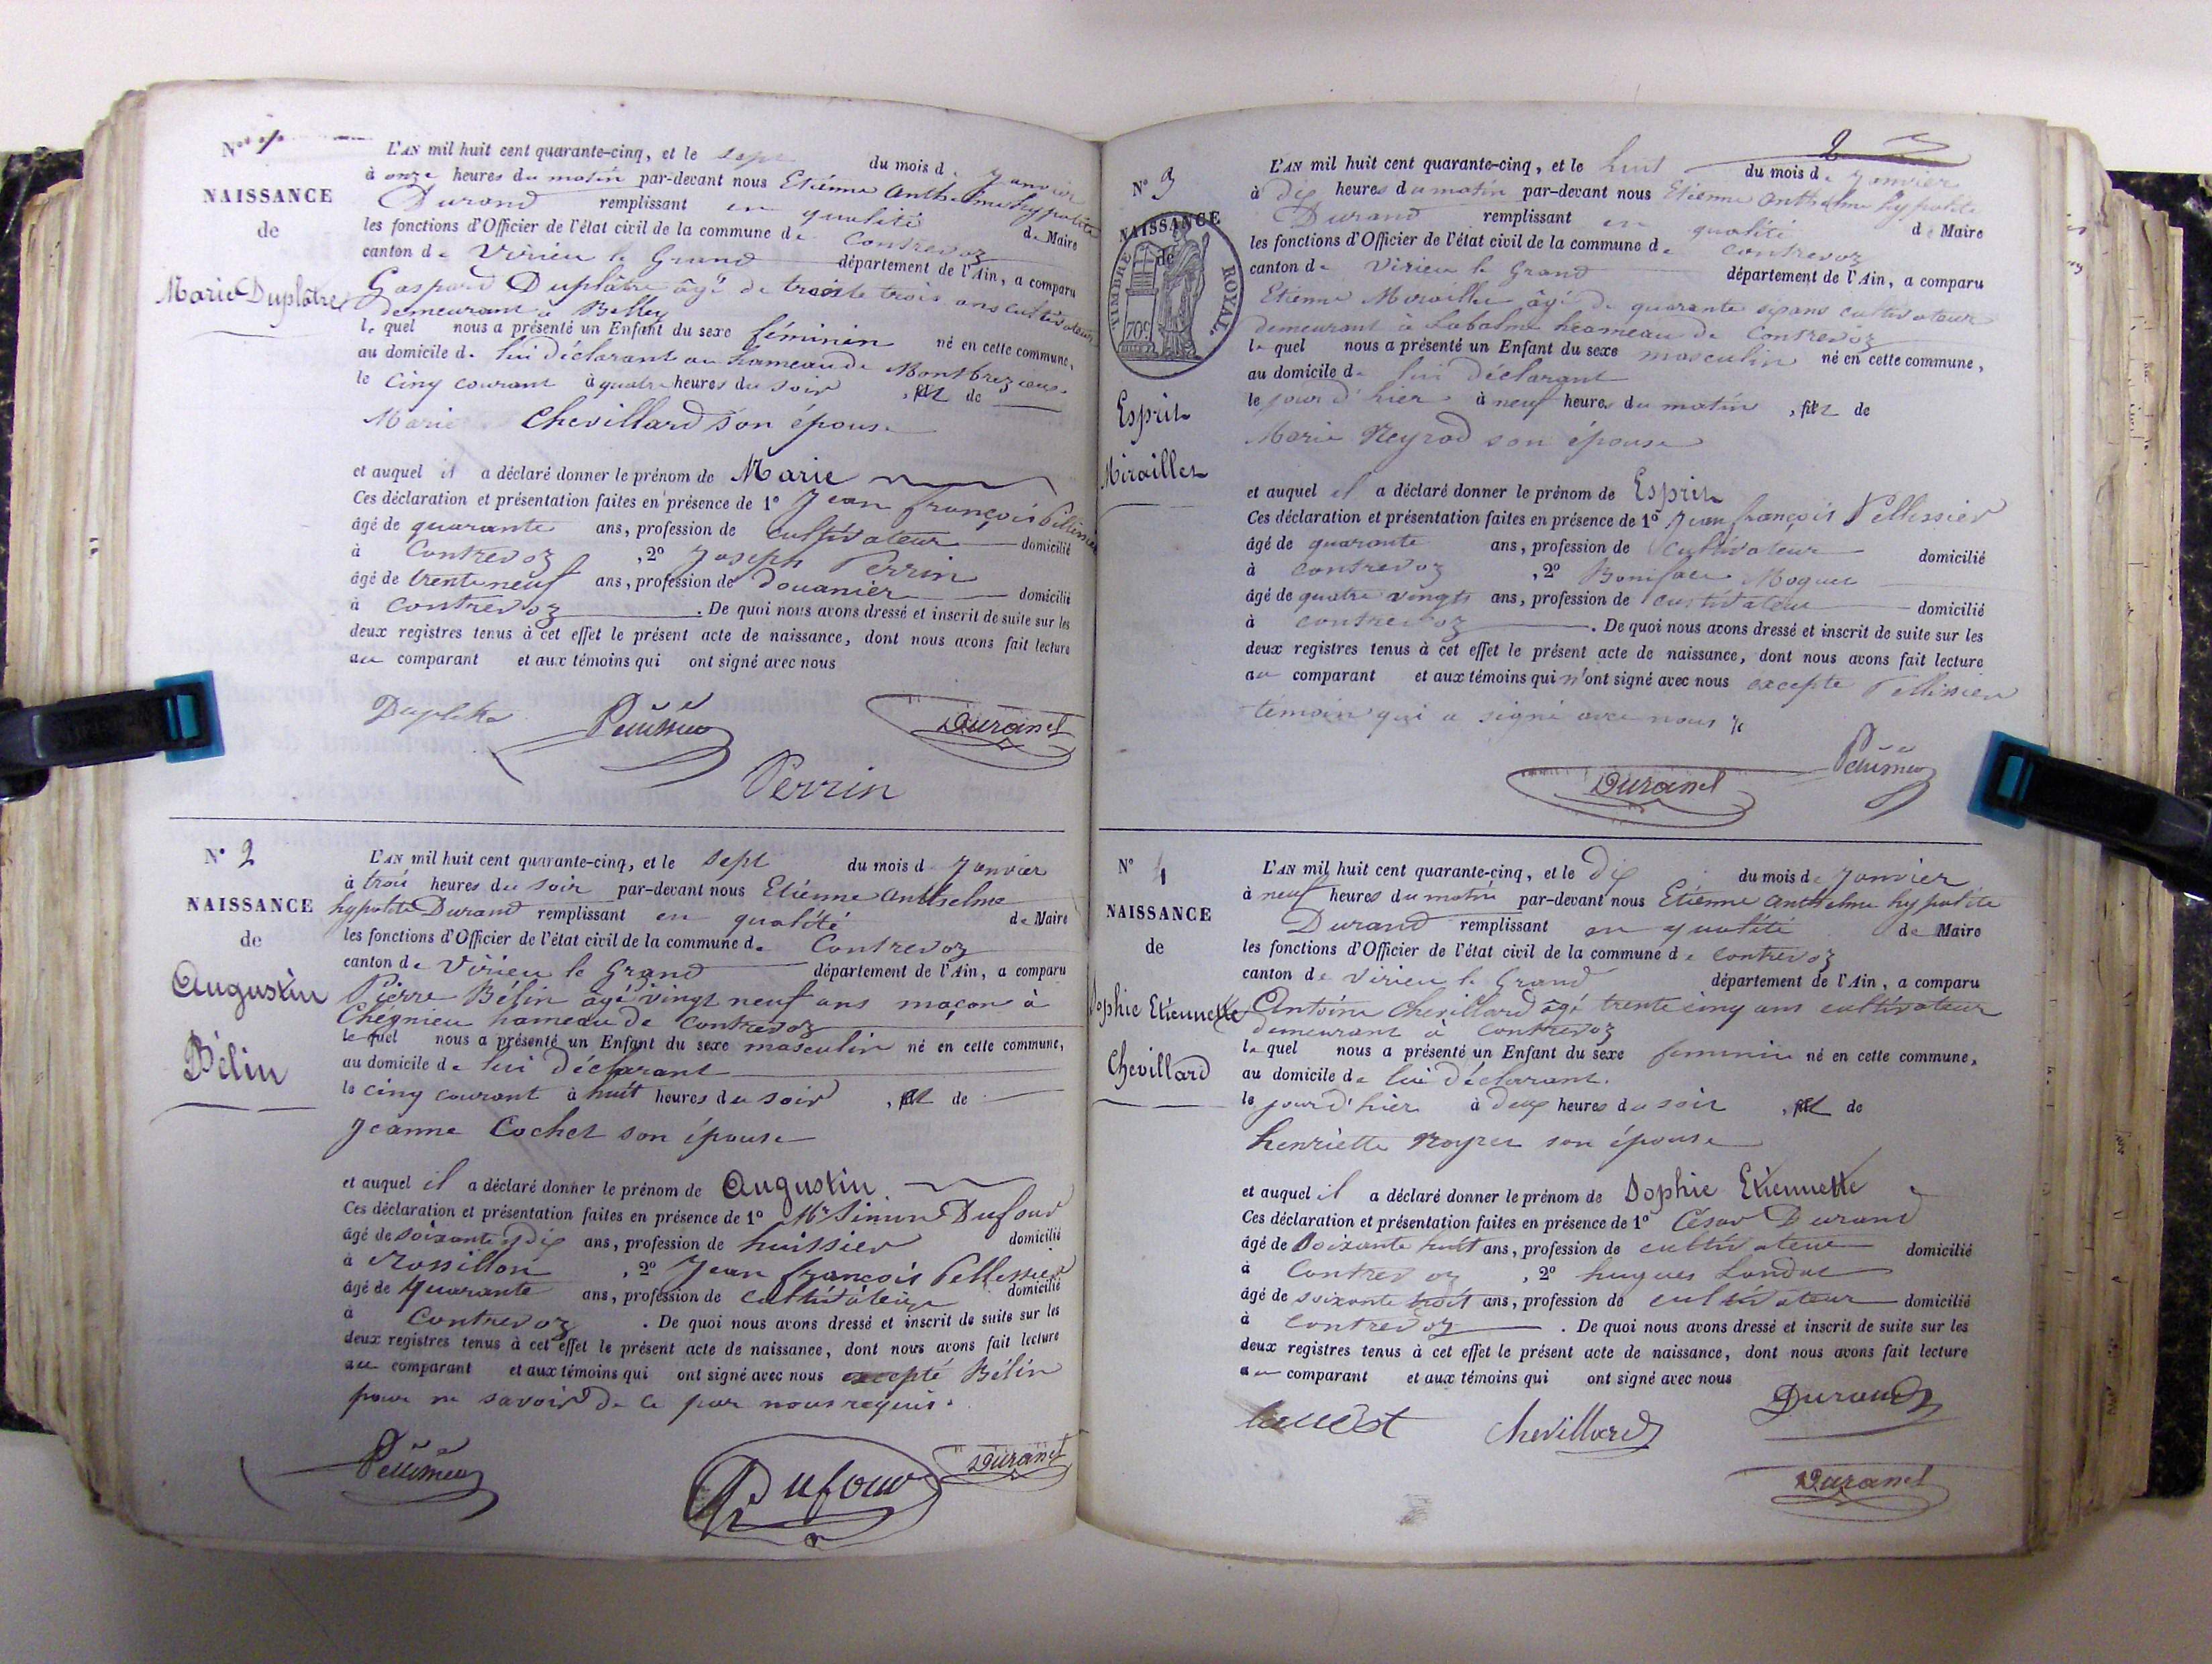 N° 1
NAISSANCE
de
Marie Duplâtre
L'AN mil huit cent quarante-cinq, et le sept du mois de Janvier
à onze heures du matin par-devant nous Etienne Anthelme hypolite
Durand remplissant en qualité de Maire
les fonctions d'Officier de l'état civil de la commune de Contrevoz
canton de Virieu le Grand département de l'Ain, a comparu
Gaspard Duplâtre âgé de trente trois ans cultivateur
demeurant à Belley
le quel nous a présenté un Enfant du sexe féminin né en cette commune,
au domicile de lui déclarant au hameau de
le cinq courant à quatre heures du soir, de
Marie Chevillard son épouse
et auquel il a déclaré donner le prénom de Marie
Ces déclaration et présentation faites en présence de 1° Jean françois Pellissier
âgé de quarante ans, profession de cultivateur domicilié
à Contrevoz, 2° Joseph Perrin
âgé de trente neuf ans, profession de douanier domicilié
à Contrevoz. De quoi nous avons dressé et inscrit de suite sur les
deux registres tenus à cet effet le présent acte de naissance, dont nous avons fait lecture
au comparant et aux témoins qui ont signé avec nous
Durand
Perrin
N° 2
NAISSANCE
de
Augustin
Bélin
L'AN mil huit cent quarante-cinq, et le sept du mois d Janvier
à trois heures du soir par-devant nous Etienne Anthelme
hypolite Durand remplissant en qualité de Maire
les fonctions d'Officier de l'état civil de la commune de Contrevoz
canton de Virieu le Grand département de l'Ain, a comparu
Pierre Bélin âgé vingt neuf ans maçon à
Chegnieu hameau de Contrevoz
le quel nous a présenté un Enfant du sexe masculin né en cette commune,
au domicile de lui déclarant
le cinq courant à huit heures du soir, de
Jeanne Cochet son épouse
et auquel il a déclaré donner le prénom de Augustin
Ces déclaration et présentation faites en présence de 1° Mr Simon Dufour
âgé de soixante et dix ans, profession de huissier domicilié
à Rossillon, 2° Jean françois Pellissier
âgé de quarante ans, profession de cultivateur domicilié
à Contrevoz. De quoi nous avons dressé et inscrit de suite sur les
deux registres tenus à cet effet le présent acte de naissance, dont nous avons fait lecture
au comparant et aux témoins qui ont signé avec nous excepté Bélin
pour ne savoir de ce par nous requis.
Dufour
Durand
2
N° 3
NAISSANCE
de
TIMBRE ROYAL
70c
Esprit
Miraillet
L'AN mil huit cent quarante-cinq, et le huit du mois de Janvier
à dix heures du matin par-devant nous Etienne Anthelme hypolite
Durand remplissant en qualité de Maire
les fonctions d'Officier de l'état civil de la commune de Contrevoz
canton de Virieu le Grand département de l'Ain, a comparu
Etienne Miraillet âgé de quarante six ans cultivateur
demeurant à Labalme hameau de Contrevoz
le quel nous a présenté un Enfant du sexe masculin né en cette commune,
au domicile de lui déclarant
le jour d'hier à neuf heures du matin, fils de
Marie Neyrod son épouse
et auquel il a déclaré donner le prénom de Esprit
Ces déclaration et présentation faites en présence de 1° Jean françois Pellissier
âgé de quarante ans, profession de cultivateur domicilié
à Contrevoz, 2° Boniface
âgé de quatre vingts ans, profession de cultivateur domicilié
à Contrevoz. De quoi nous avons dressé et inscrit de suite sur les
deux registres tenus à cet effet le présent acte de naissance, dont nous avons fait lecture
au comparant et aux témoins qui n'ont signé avec nous excepté Pellissier
témoin qui a signé avec nous
Durand
N° 4
NAISSANCE
de
Sophie Etiennette
Chevillard
L'AN mil huit cent quarante-cinq, et le dix du mois de Janvier
à neuf heures du matin par-devant nous Etienne Anthelme hypolite
Durand remplissant en qualité de Maire
les fonctions d'Officier de l'état civil de la commune de Contrevoz
canton de Virieu le Grand département de l'Ain, a comparu
Antoine Chevillard âgé trente cinq ans cultivateur
demeurant à Contrevoz
le quel nous a présenté un Enfant du sexe feminin né en cette commune,
au domicile de lui déclarant.
le jour d'hier à deux heures du soir, de
henriette son épouse
et auquel il a déclaré donner le prénom de Sophie Etiennette
Ces déclaration et présentation faites en présence de 1° César Durand
âgé de soixante huit ans, profession de cultivateur domicilié
à Contrevoz, 2° hugues
âgé de soixante trois ans, profession de cultivateur domicilié
à Contrevoz. De quoi nous avons dressé et inscrit de suite sur les
deux registres tenus à cet effet le présent acte de naissance, dont nous avons fait lecture
au comparant et aux témoins qui ont signé avec nous
Chevillard
Durand
Durand